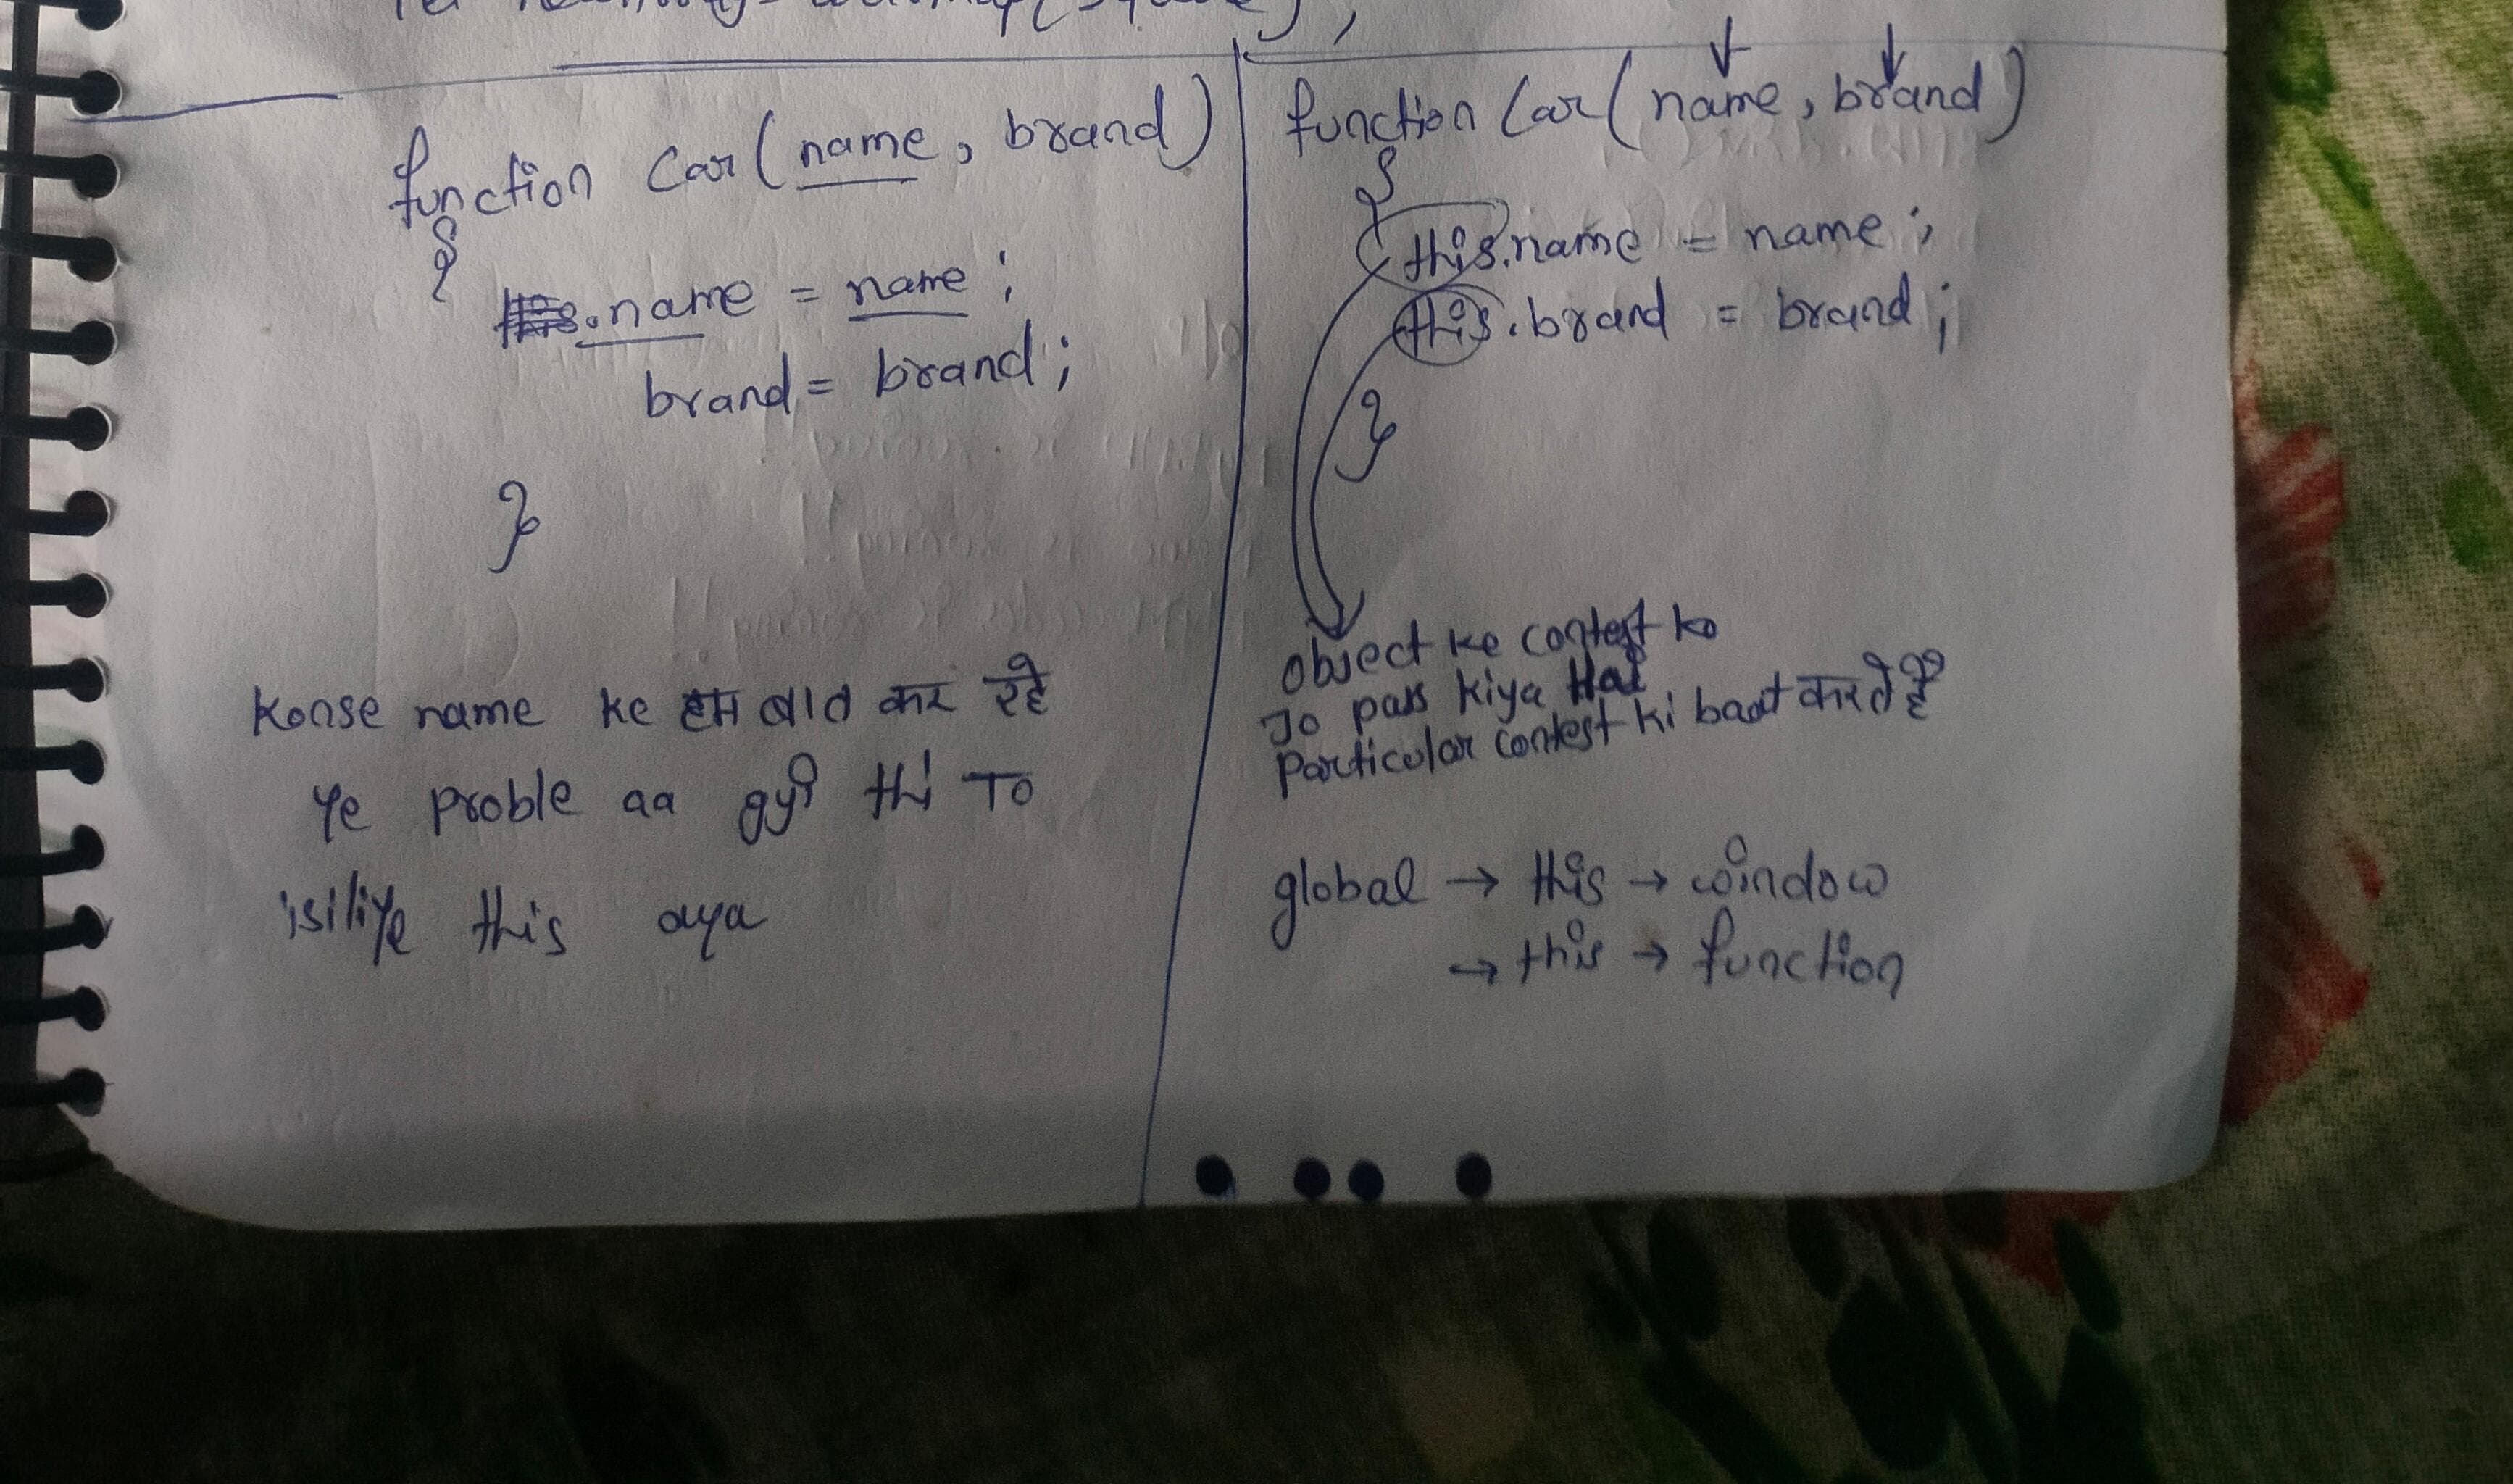 function Car(name, brand)
{
name = name;
brand = brand;
}
Konse name ke हम बात कर रहे
Ye proble aa gyi thi To
isiliye this aya
function Car(name, brand)
{
this.name = name;
this.brand = brand;
}
object ke contest ko
Jo pass kiya Hai
Particular contest ki baat करते हैं
global → this → window
→ this → function